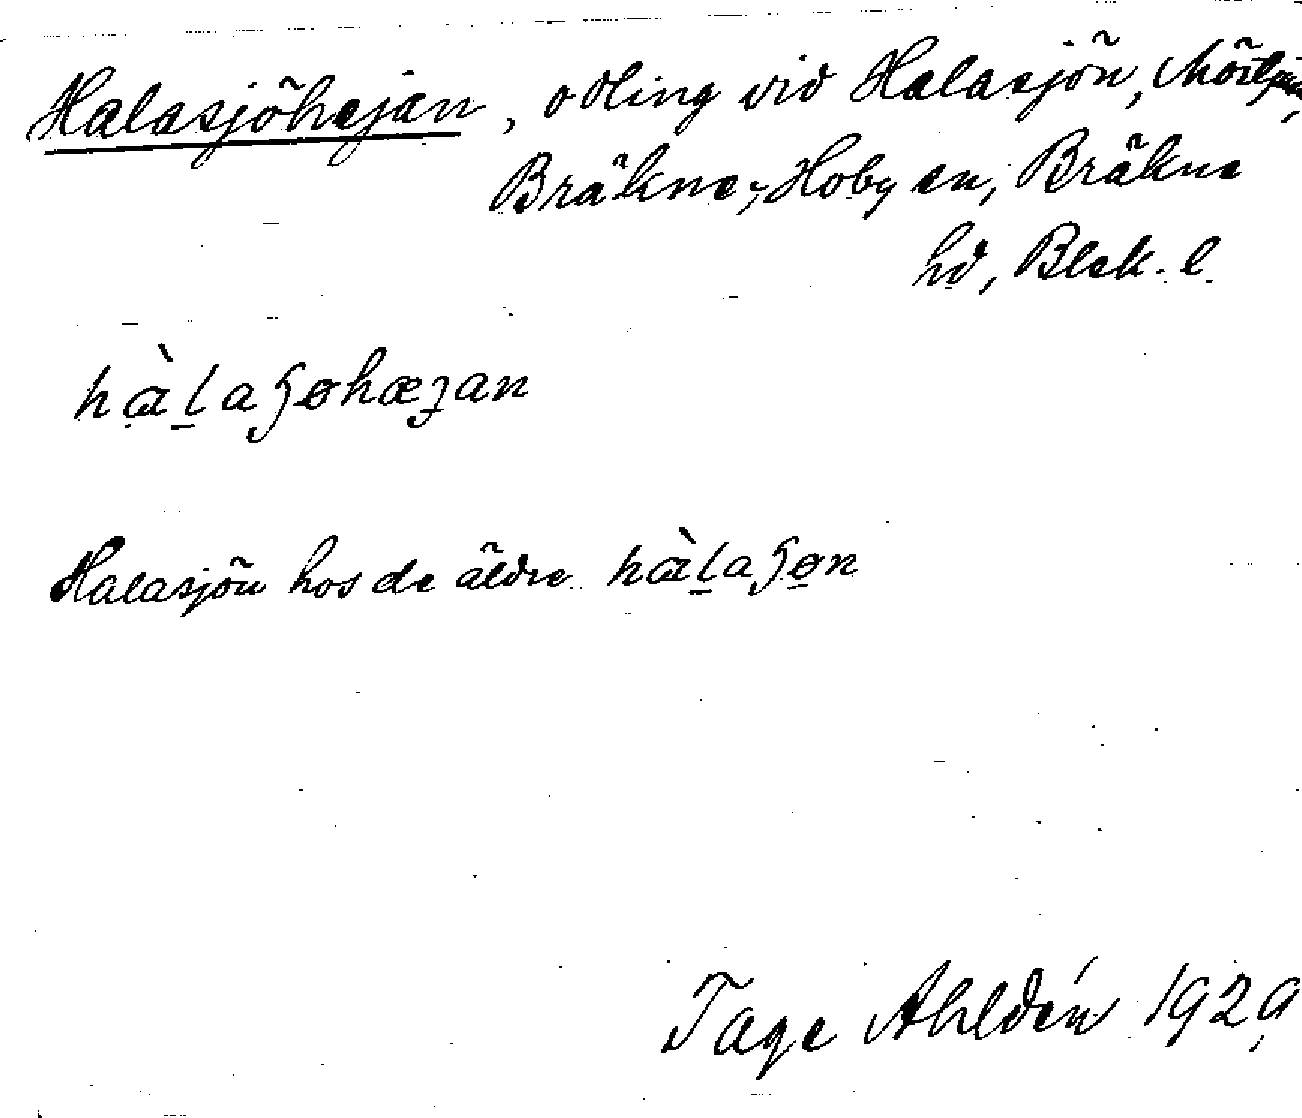 Halasjöhejan, odling vid Halasjön,
Bräkne-Hoby sn, Bräkne
hd, Blek. l.
hàlaʂøhæȷan
Halasjön hos de äldre hàlaʂøn
Tage Ahldén 1929